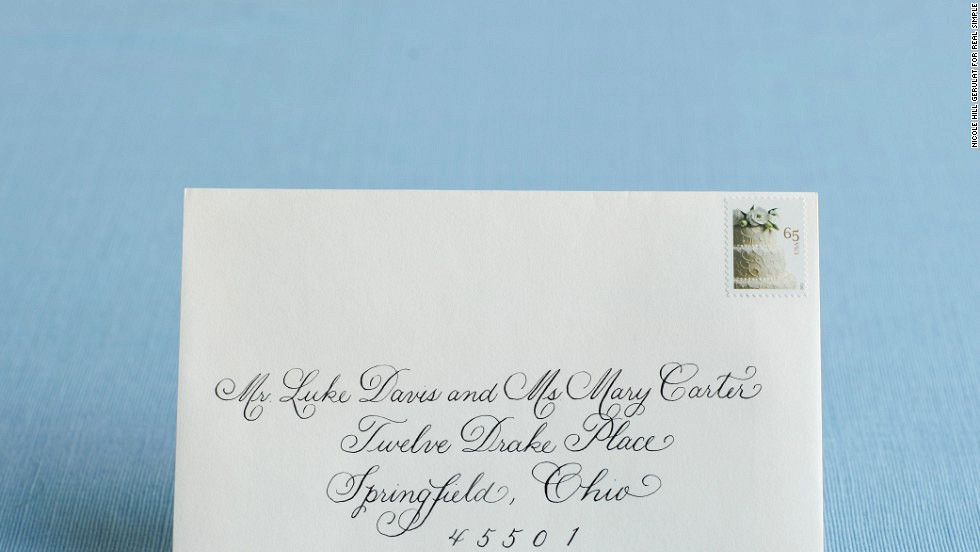 NICOLE HILL GERULAT FOR REAL SIMPLE
65
USA
Mr. Luke Davis and Ms Mary Carter
Twelve Drake Place
Springfield, Ohio
45501